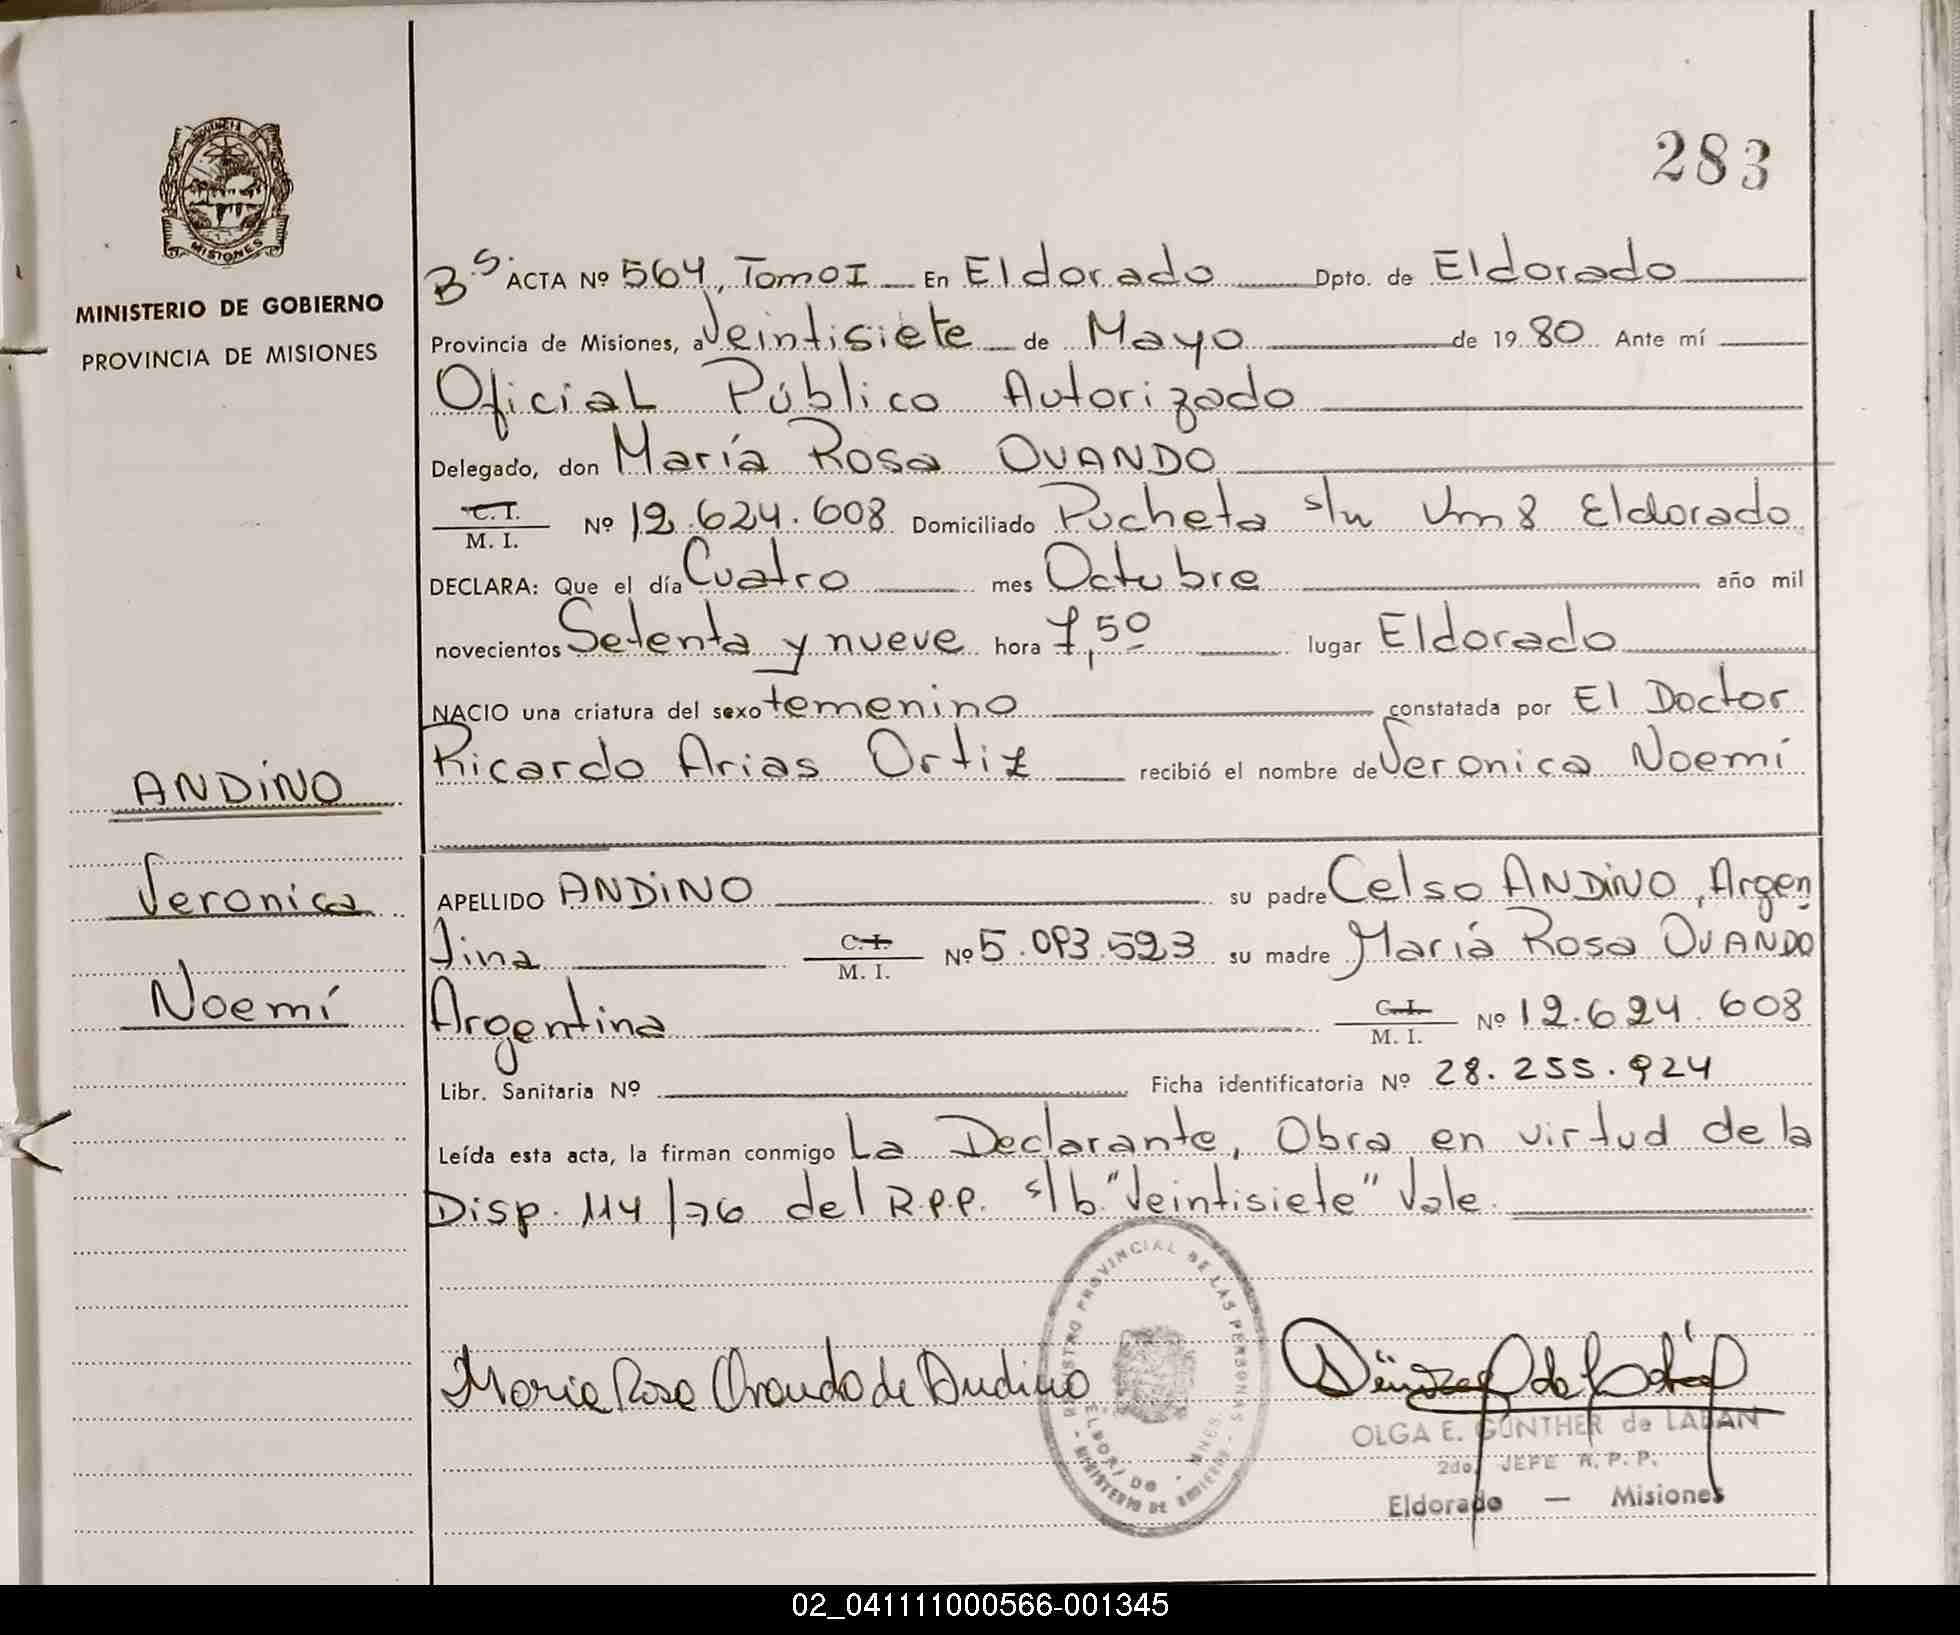 283
PROVINCIA DE
MISIONES
MINISTERIO DE GOBIERNO
PROVINCIA DE MISIONES
Bs. ACTA Nº 564, Tomo I En Eldorado Dpto. de Eldorado
Provincia de Misiones, a Veintisiete de Mayo de 1980 Ante mí
Oficial Público Autorizado
Delegado, don María Rosa OVANDO
C.I.
M. I. Nº 12.624.608 Domiciliado Pucheta s/n Km 8 Eldorado
DECLARA: Que el día Cuatro mes Octubre año mil
novecientos Setenta y nueve hora 7,50 lugar Eldorado
NACIO una criatura del sexo femenino constatada por El Doctor
Ricardo Arias Ortiz recibió el nombre de Veronica Noemí
ANDINO
Veronica
Noemí
APELLIDO ANDINO su padre Celso ANDINO, Argen
tina C.I. M. I. Nº 5.093.523 su madre María Rosa OVANDO
Argentina C.I. M. I. Nº 12.624.608
Libr. Sanitaria Nº Ficha identificatoria Nº 28.255.924
Leída esta acta, la firman conmigo La Declarante, Obra en virtud de la
Disp. 114/76 del R.P.P. s/b "Veintisiete" Vale.
Maria Rosa Ovando de Andino
REGISTRO PROVINCIAL DE LAS PERSONAS
ELDORADO - MNES.
MINISTERIO DE GOBIERNO
OLGA E. GÜNTHER de LABAN
2do. JEFE R. P. P.
Eldorado — Misiones
02_041111000566-001345